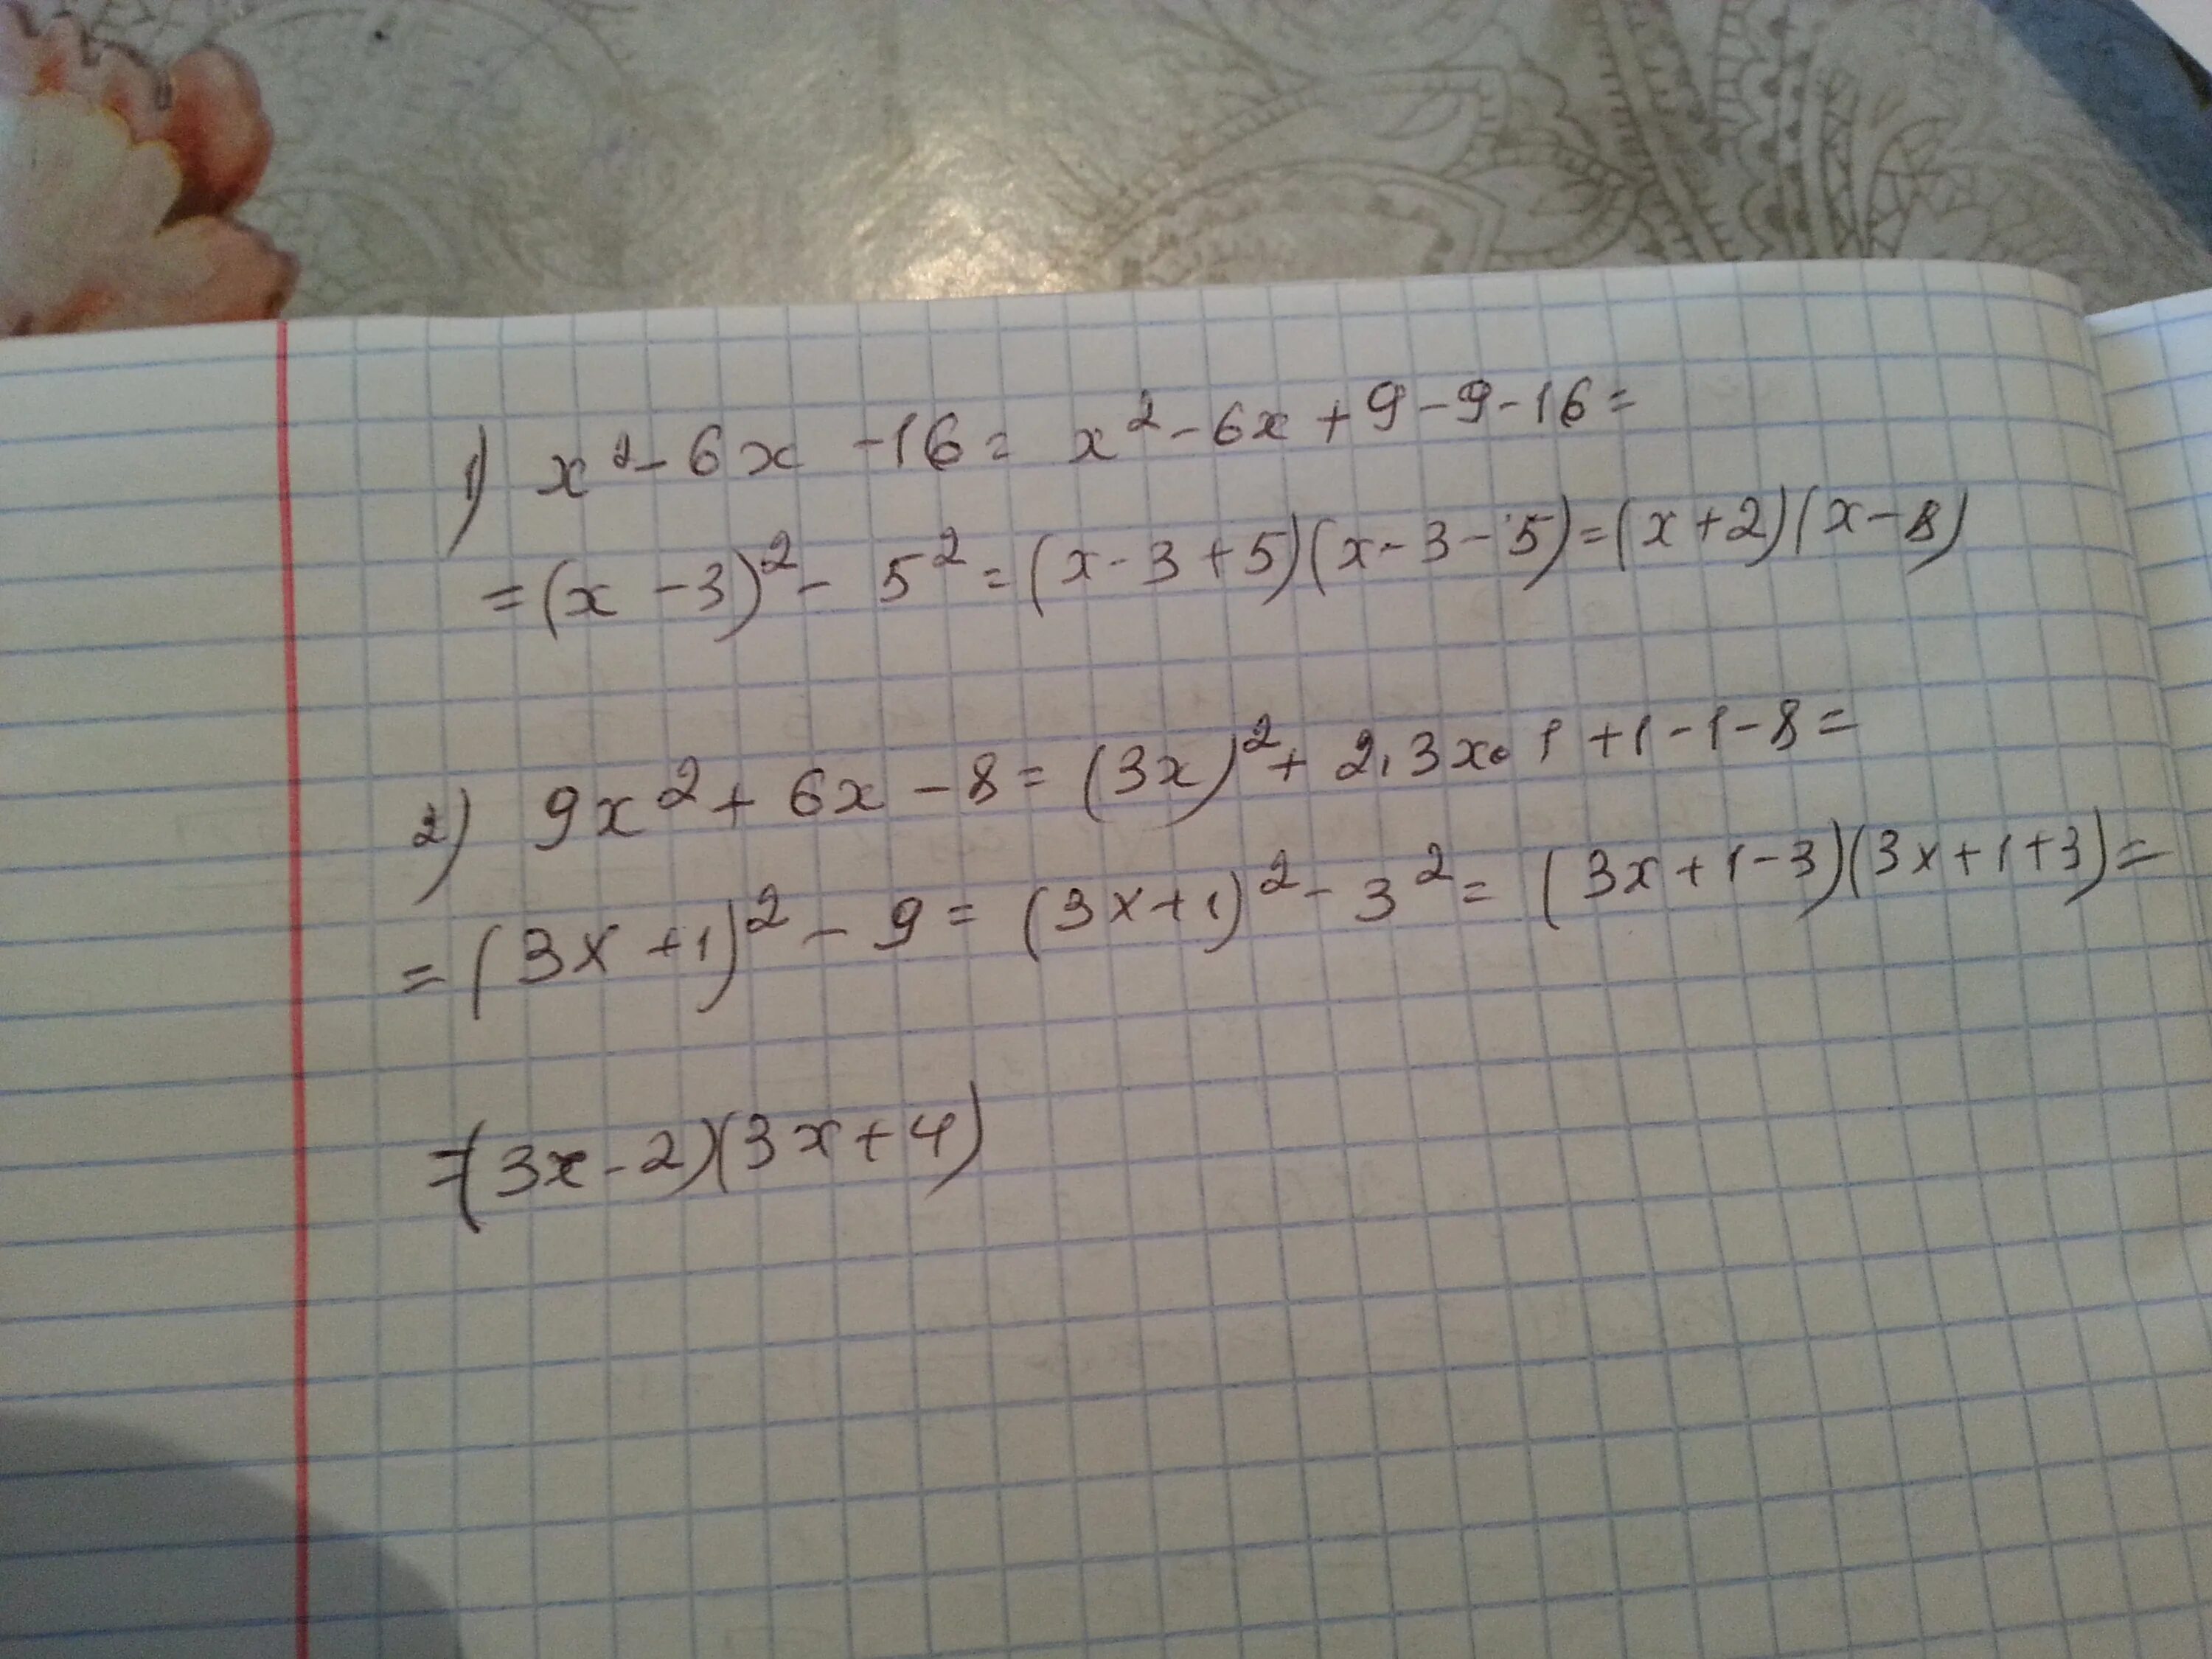 1) x² - 6x - 16 = x² - 6x + 9 - 9 - 16 =
= (x - 3)² - 5² = (x - 3 + 5)(x - 3 - 5) = (x + 2)(x - 8)
2) 9x² + 6x - 8 = (3x)² + 2·3x·1 + 1 - 1 - 8 =
= (3x + 1)² - 9 = (3x + 1)² - 3² = (3x + 1 - 3)(3x + 1 + 3) =
= (3x - 2)(3x + 4)